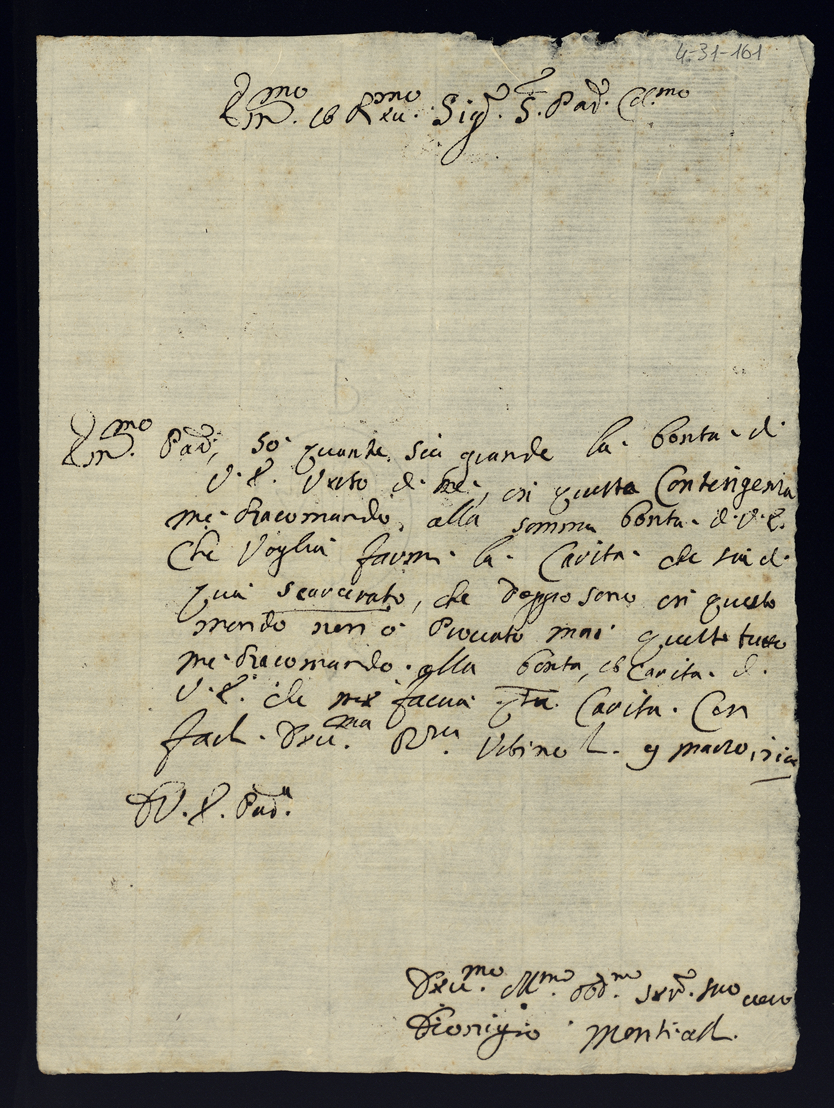 4-31-161
Em.mo et R.mo Sig.r S. Pad. Col.mo
Em.mo Pad., so quante sia grande la bonta di
V. E. verso di me, in questa Contengenza
me racomando alla somma bonta di V. E.
che voglia farmi la Carita che sia di
qua scarcerato, che doppo sono in questo
mondo non o provato mai queste tutto
me racomando alla bonta, et Carita di
V. E. che me faccia q.ta Carita. Con
Urbino 9 marzo
D V. E. Pad.
Dev.mo obb.mo Ser.re suo vero
Dionigio Monti